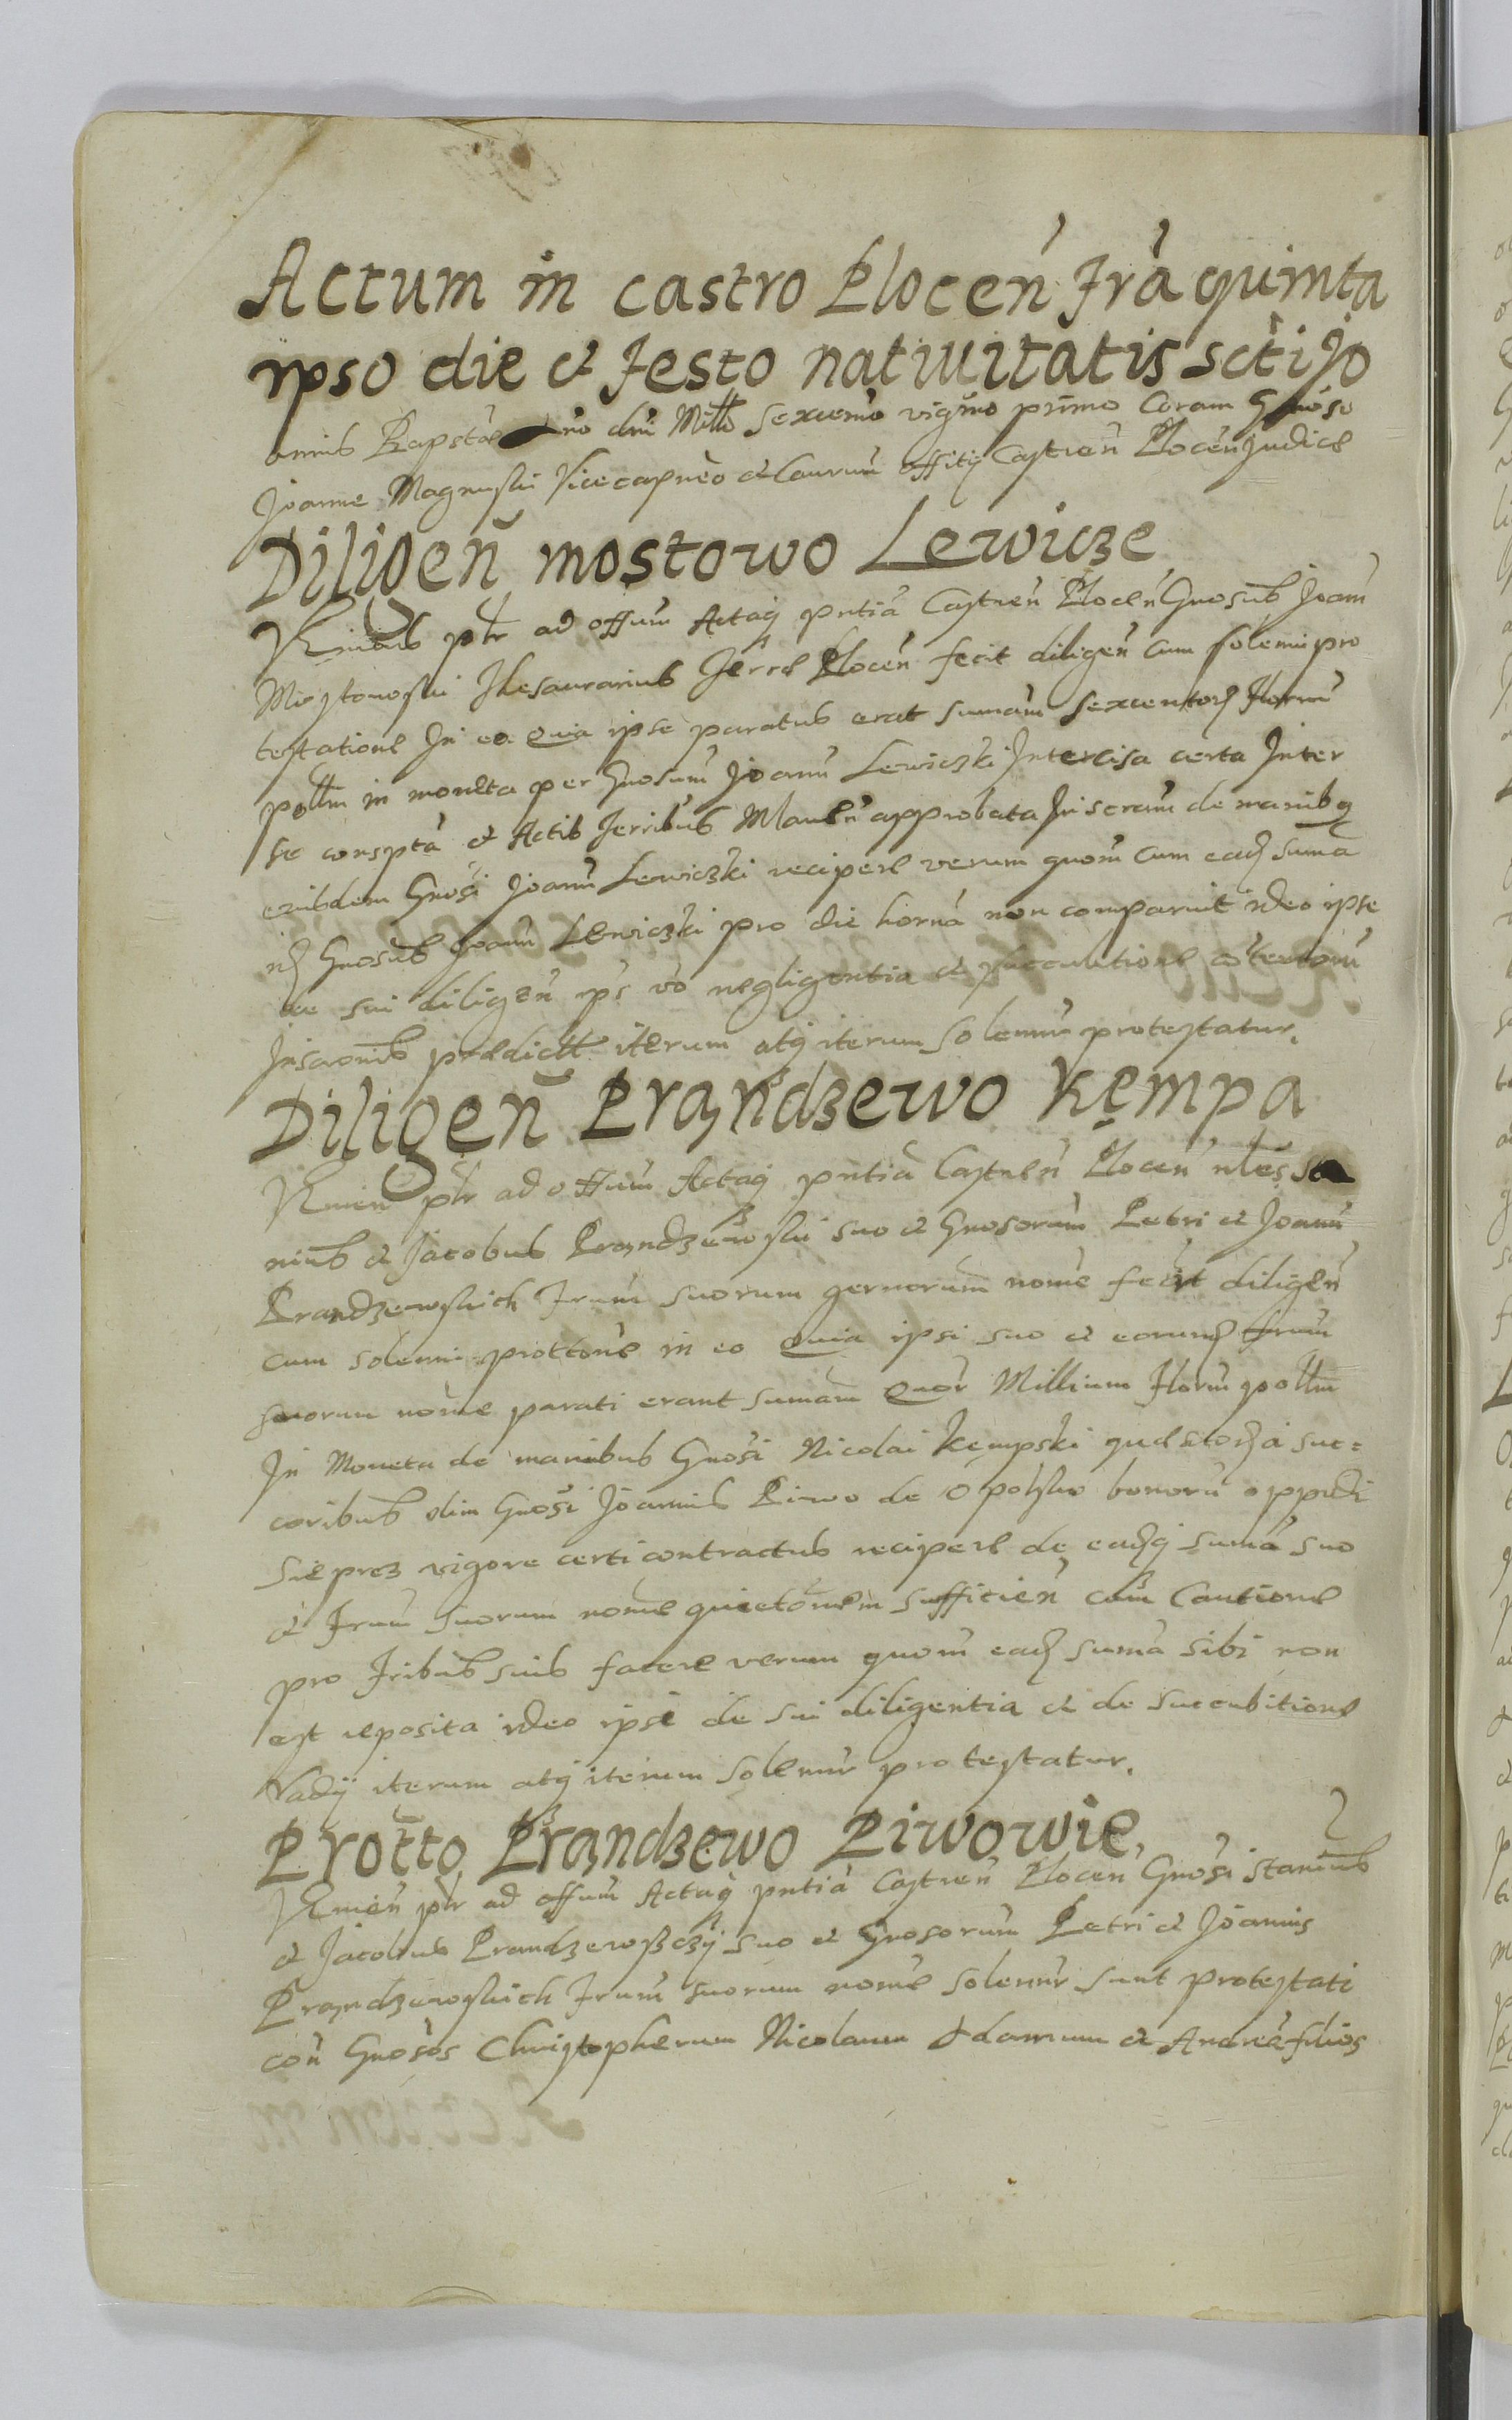 Actum in castro Plocen fra quinta
ipso die et festo nativitatis scti Jo
annis Bapstae Ano dni Mille sexcemo vigmo primo Coram Gnoso
Joanne Magnuski Vicecapneo et Caurum offitij Castren Plocen Judice
Diligen mostowo Lewicze
Veniens ptr ad offum Actaq pntia Castren Plocen Gnosus Joan
Mostowski Thesaurarius Terrae Plocen fecit diligen cum solemi pro
testatione In eo Quia ipse paratus erat sumam sexcentor floru
pollm in moneta per Gnosum Joann Lewiczki Intercisa certa Inter
se conspta et Actis Terribus Mlaven approbata Inscram de manibq
eiusdem Gnosi Joann Lewiczki recipere verum quom cum ead suma
id Gnosus Joann Lewiczki pro die horna non comparuit ideo ipse
de sui diligen ips vo negligentia et succubitione
Inscronis praedictae iterum atq iterum solemr protestatur.
Diligen Prandzewo Kempa
Venien ptr ad offum Actaq pntia Castren Plocen nles Sta
nius et Jacobus Prandzewski suo et Gnosorum Petri et Joann
Prandzewskich frum suorum gernorum nome fecit diligen
cum solemi prottone in eo Quia ipsi suo et eorund frum
suorum nome parati erant sumam Quor Millium floru pollm
In Moneta de manibus Gnosi Nicolai Kempski a suc=
coribus olim Gnosi Joannis Piwo de Opolsko bonoru oppidi
Sieprcz vigore certi contractus recipere de eadq suma suo
et frum suorum nome quietonem sufficien cum Cautione
pro fribus suis facere verum quom ead suma sibi non
est reposita ideo ipsi de sui diligentia et de succubitione
Vadij iterum atq iterum solemr protestatur.
Protto Prandzewo Piwowie
Venien ptr ad offum Actaq pntia Castren Plocen Gnosi Stanius
et Jacobus Prandzewsczij suo et Gnosorum Petri et Joannis
Prandzewskich frum suorum nome solemr sunt protestati
con Gnosos Christopherum Nicolaum Adamum et Andrea filios